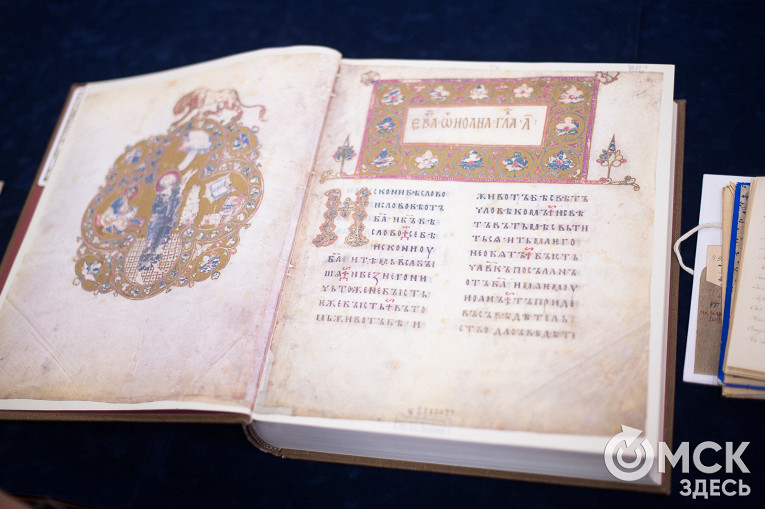 ЕВА ѾИОАНА ГЛА А
ИСКОНИБѢСЛОВО
ИСЛОВОБѢОТЪ
БА ИБЪБѢ
СЛОВО СЕБѢ
ИСКОНИОУ
БА И ТѢМЬВСАБЫ
ША ИБЕЗНЕГОНИ
ЧЬТОЖЕНЕБЫСТЬ
ИЖЕБЫСТЬ ВЪТО
МЬЖИВОТЪБѢ И
ЖИВОТЪБѢСВѢТЪ
ЧЛОВѢКОМЪ ИСВѢ
ТЪВЪТЬМѢСВЬТИ
ТЬСѦ ИТЬМАНЕГО
НЕОБАТЪ БЫСТЬ
ЧЛВКЪПОСЪЛАНЪ
ОТЪБА ИМАЮМОУ
ИОАНЪ ТЪПРИДЕ
ВЪСЪВѢДѢТЕЛЬ
СТВО ДАСЪВѢДѢТЕ
ОМСК
ЗДЕСЬ